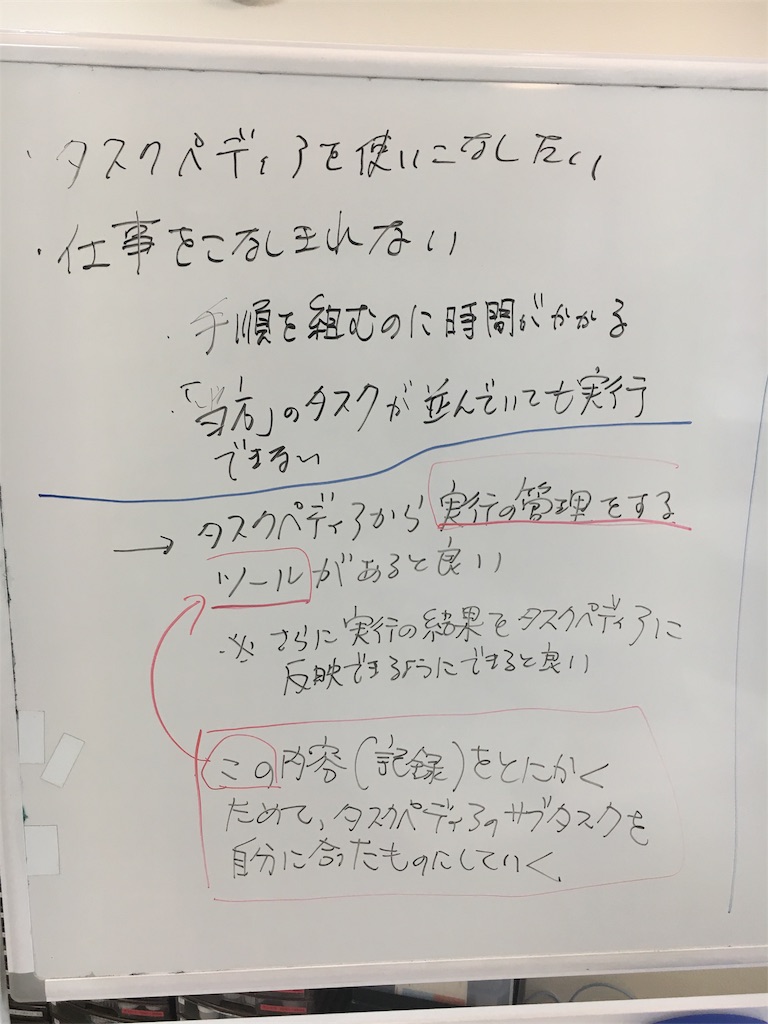 ・タスクペディアを使いこなしたい
・仕事をこなしきれない
・手順を組むのに時間がかかる
・「当方」のタスクが並んでいても実行
できない
→ タスクペディアから実行の管理をする
ツールがあると良い
※ さらに実行の結果をタスクペディアに
反映できるようにできると良い
この内容(記録)をとにかく
ためて、タスクペディアのサブタスクを
自分に合ったものにしていく